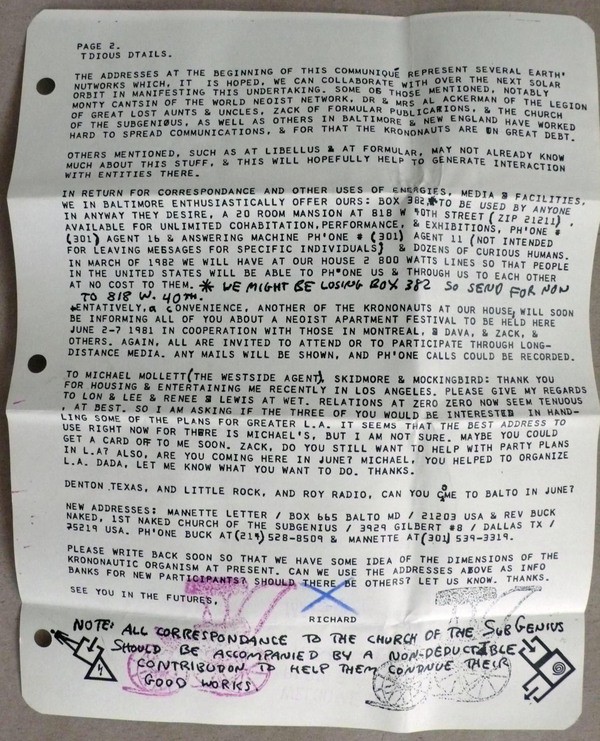 PAGE 2.
TDIOUS DTAILS.
THE ADDRESSES AT THE BEGINNING OF THIS COMMUNIQUÉ REPRESENT SEVERAL EARTH'
NUTWORKS WHICH, IT IS HOPED, WE CAN COLLABORATE WITH OVER THE NEXT SOLAR
ORBIT IN MANIFESTING THIS UNDERTAKING. SOME OF THOSE MENTIONED, NOTABLY
MONTY CANTSIN OF THE WORLD NEOIST NETWORK, DR & MRS AL ACKERMAN OF THE LEGION
OF GREAT LOST AUNTS & UNCLES, ZACK OF FORMULAR PUBLICATIONS, & THE CHURCH
OF THE SUBGENIOUS, AS WELL AS OTHERS IN BALTIMORE & NEW ENGLAND HAVE WORKED
HARD TO SPREAD COMMUNICATIONS, & FOR THAT THE KRONONAUTS ARE IN GREAT DEBT.
OTHERS MENTIONED, SUCH AS AT LIBELLUS & AT FORMULAR, MAY NOT ALREADY KNOW
MUCH ABOUT THIS STUFF, & THIS WILL HOPEFULLY HELP TO GENERATE INTERACTION
WITH ENTITIES THERE.
IN RETURN FOR CORRESPONDANCE AND OTHER USES OF ENERGIES, MEDIA & FACILITIES,
WE IN BALTIMORE ENTHUSIASTICALLY OFFER OURS: BOX 382,* TO BE USED BY ANYONE
IN ANYWAY THEY DESIRE, A 20 ROOM MANSION AT 818 W 40TH STREET (ZIP 21211),
AVAILABLE FOR UNLIMITED COHABITATION,PERFORMANCE, & EXHIBITIONS, PH'ONE #
(301) AGENT 16 & ANSWERING MACHINE PH'ONE # (301) AGENT 11 (NOT INTENDED
FOR LEAVING MESSAGES FOR SPECIFIC INDIVIDUALS) & DOZENS OF CURIOUS HUMANS.
IN MARCH OF 1982 WE WILL HAVE AT OUR HOUSE 2 800 WATTS LINES SO THAT PEOPLE
IN THE UNITED STATES WILL BE ABLE TO PH'ONE US & THROUGH US TO EACH OTHER
AT NO COST TO THEM. * WE MIGHT BE LOSING BOX 382 SO SEND FOR NOW
TO 818 W. 40TH.
TENTATIVELY,a CONVENIENCE, ANOTHER OF THE KRONONAUTS AT OUR HOUSE, WILL SOON
BE INFORMING ALL OF YOU ABOUT A NEOIST APARTMENT FESTIVAL TO BE HELD HERE
JUNE 2-7 1981 IN COOPERATION WITH THOSE IN MONTREAL, & DAVA, & ZACK, &
OTHERS. AGAIN, ALL ARE INVITED TO ATTEND OR TO PARTICIPATE THROUGH LONG-
DISTANCE MEDIA. ANY MAILS WILL BE SHOWN, AND PH'ONE CALLS COULD BE RECORDED.
TO MICHAEL MOLLETT(THE WESTSIDE AGENT), SKIDMORE & MOCKINGBIRD: THANK YOU
FOR HOUSING & ENTERTAINING ME RECENTLY IN LOS ANGELES. PLEASE GIVE MY REGARDS
TO LON & LEE & RENEE & LEWIS AT WET. RELATIONS AT ZERO ZERO NOW SEEM TENUOUS
, AT BEST. SO I AM ASKING IF THE THREE OF YOU WOULD BE INTERESTED IN HAND-
LING SOME OF THE PLANS FOR GREATER L.A. IT SEEMS THAT THE BEST ADDRESS TO
USE RIGHT NOW FOR THERE IS MICHAEL'S, BUT I AM NOT SURE. MAYBE YOU COULD
GET A CARD OFF TO ME SOON. ZACK, DO YOU STILL WANT TO HELP WITH PARTY PLANS
IN L.A? ALSO, ARE YOU COMING HERE IN JUNE? MICHAEL, YOU HELPED TO ORGANIZE
L.A. DADA, LET ME KNOW WHAT YOU WANT TO DO. THANKS.
DENTON TEXAS, AND LITTLE ROCK, AND ROY RADIO, CAN YOU COME TO BALTO IN JUNE?
NEW ADDRESSES: MANETTE LETTER / BOX 665 BALTO MD / 21203 USA & REV BUCK
NAKED, 1ST NAKED CHURCH OF THE SUBGENIUS / 3929 GILBERT #8 / DALLAS TX /
75219 USA. PH'ONE BUCK AT(214) 528-8509 & MANETTE AT(301) 539-3319.
PLEASE WRITE BACK SOON SO THAT WE HAVE SOME IDEA OF THE DIMENSIONS OF THE
KRONONAUTIC ORGANISM AT PRESENT. CAN WE USE THE ADDRESSES ABOVE AS INFO
BANKS FOR NEW PARTICIPANTS? SHOULD THERE BE OTHERS? LET US KNOW. THANKS.
SEE YOU IN THE FUTURES,
RICHARD
NOTE: ALL CORRESPONDANCE TO THE CHURCH OF THE SUBGENIUS
SHOULD BE ACCOMPANIED BY A NON-DEDUCTABLE
CONTRIBUTION TO HELP THEM CONTINUE THEIR
GOOD WORKS.